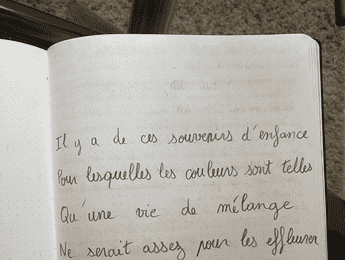 Il y a de ces souvenirs d'enfance
Pour lesquelles les couleurs sont telles
Qu'une vie de mélange
Ne serait assez pour les effleurer